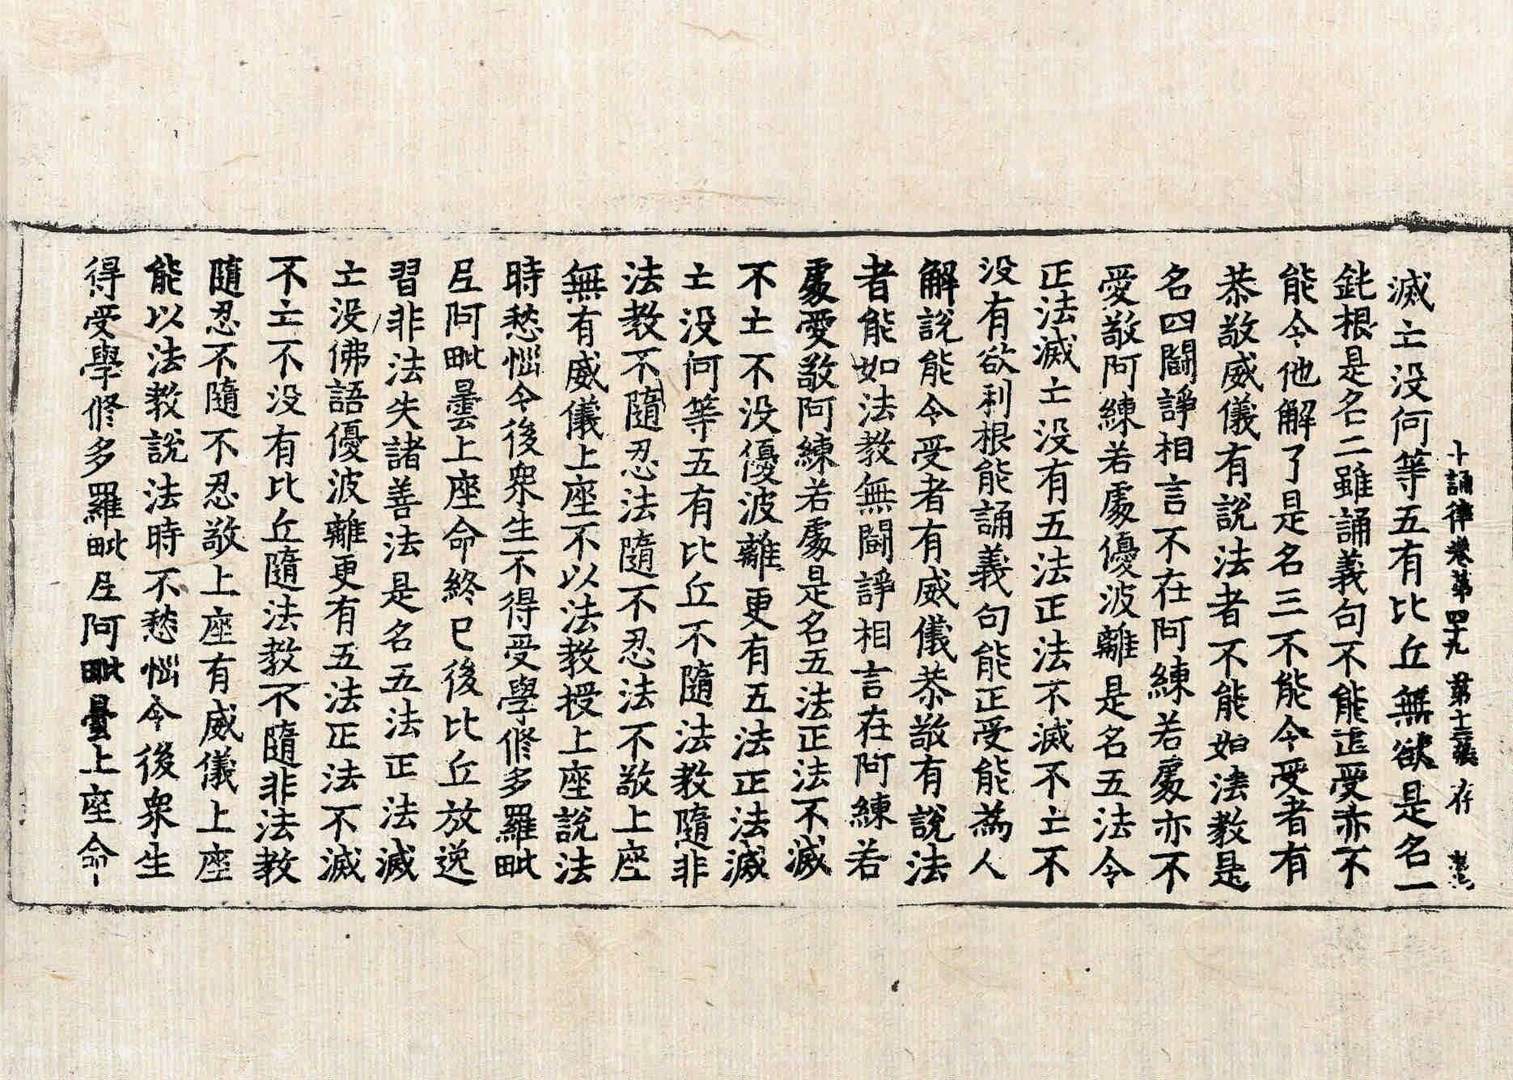 十誦律卷第四十九 第十三張 存
滅亡没何等五有比丘無欲是名一
鈍根是名二雖誦義句不能正受亦不
能令他解了是名三不能令受者有
恭敬威儀有說法者不能如法教是
名四鬪諍相言不在阿練若處亦不
愛敬阿練若處優波離是名五法令
正法滅亡没有五法正法不滅不亡不
没有欲利根能誦義句能正受能為人
解說能令受者有威儀恭敬有說法
者能如法教無鬪諍相言在阿練若
處愛敬阿練若處是名五法正法不滅
不亡不没優波離更有五法正法滅
亡没何等五有比丘不隨法教隨非
法教不隨忍法隨不忍法不敬上座
無有威儀上座不以法教授上座說法
時愁惱令後衆生不得受學修多羅毗
尼阿毗曇上座命終已後比丘放逸
習非法失諸善法是名五法正法滅
亡没佛語優波離更有五法正法不滅
不亡不没有比丘隨法教不隨非法教
隨忍不隨不忍敬上座有威儀上座
能以法教說法時不愁惱令後衆生
得受學修多羅毗尼阿毗曇上座命